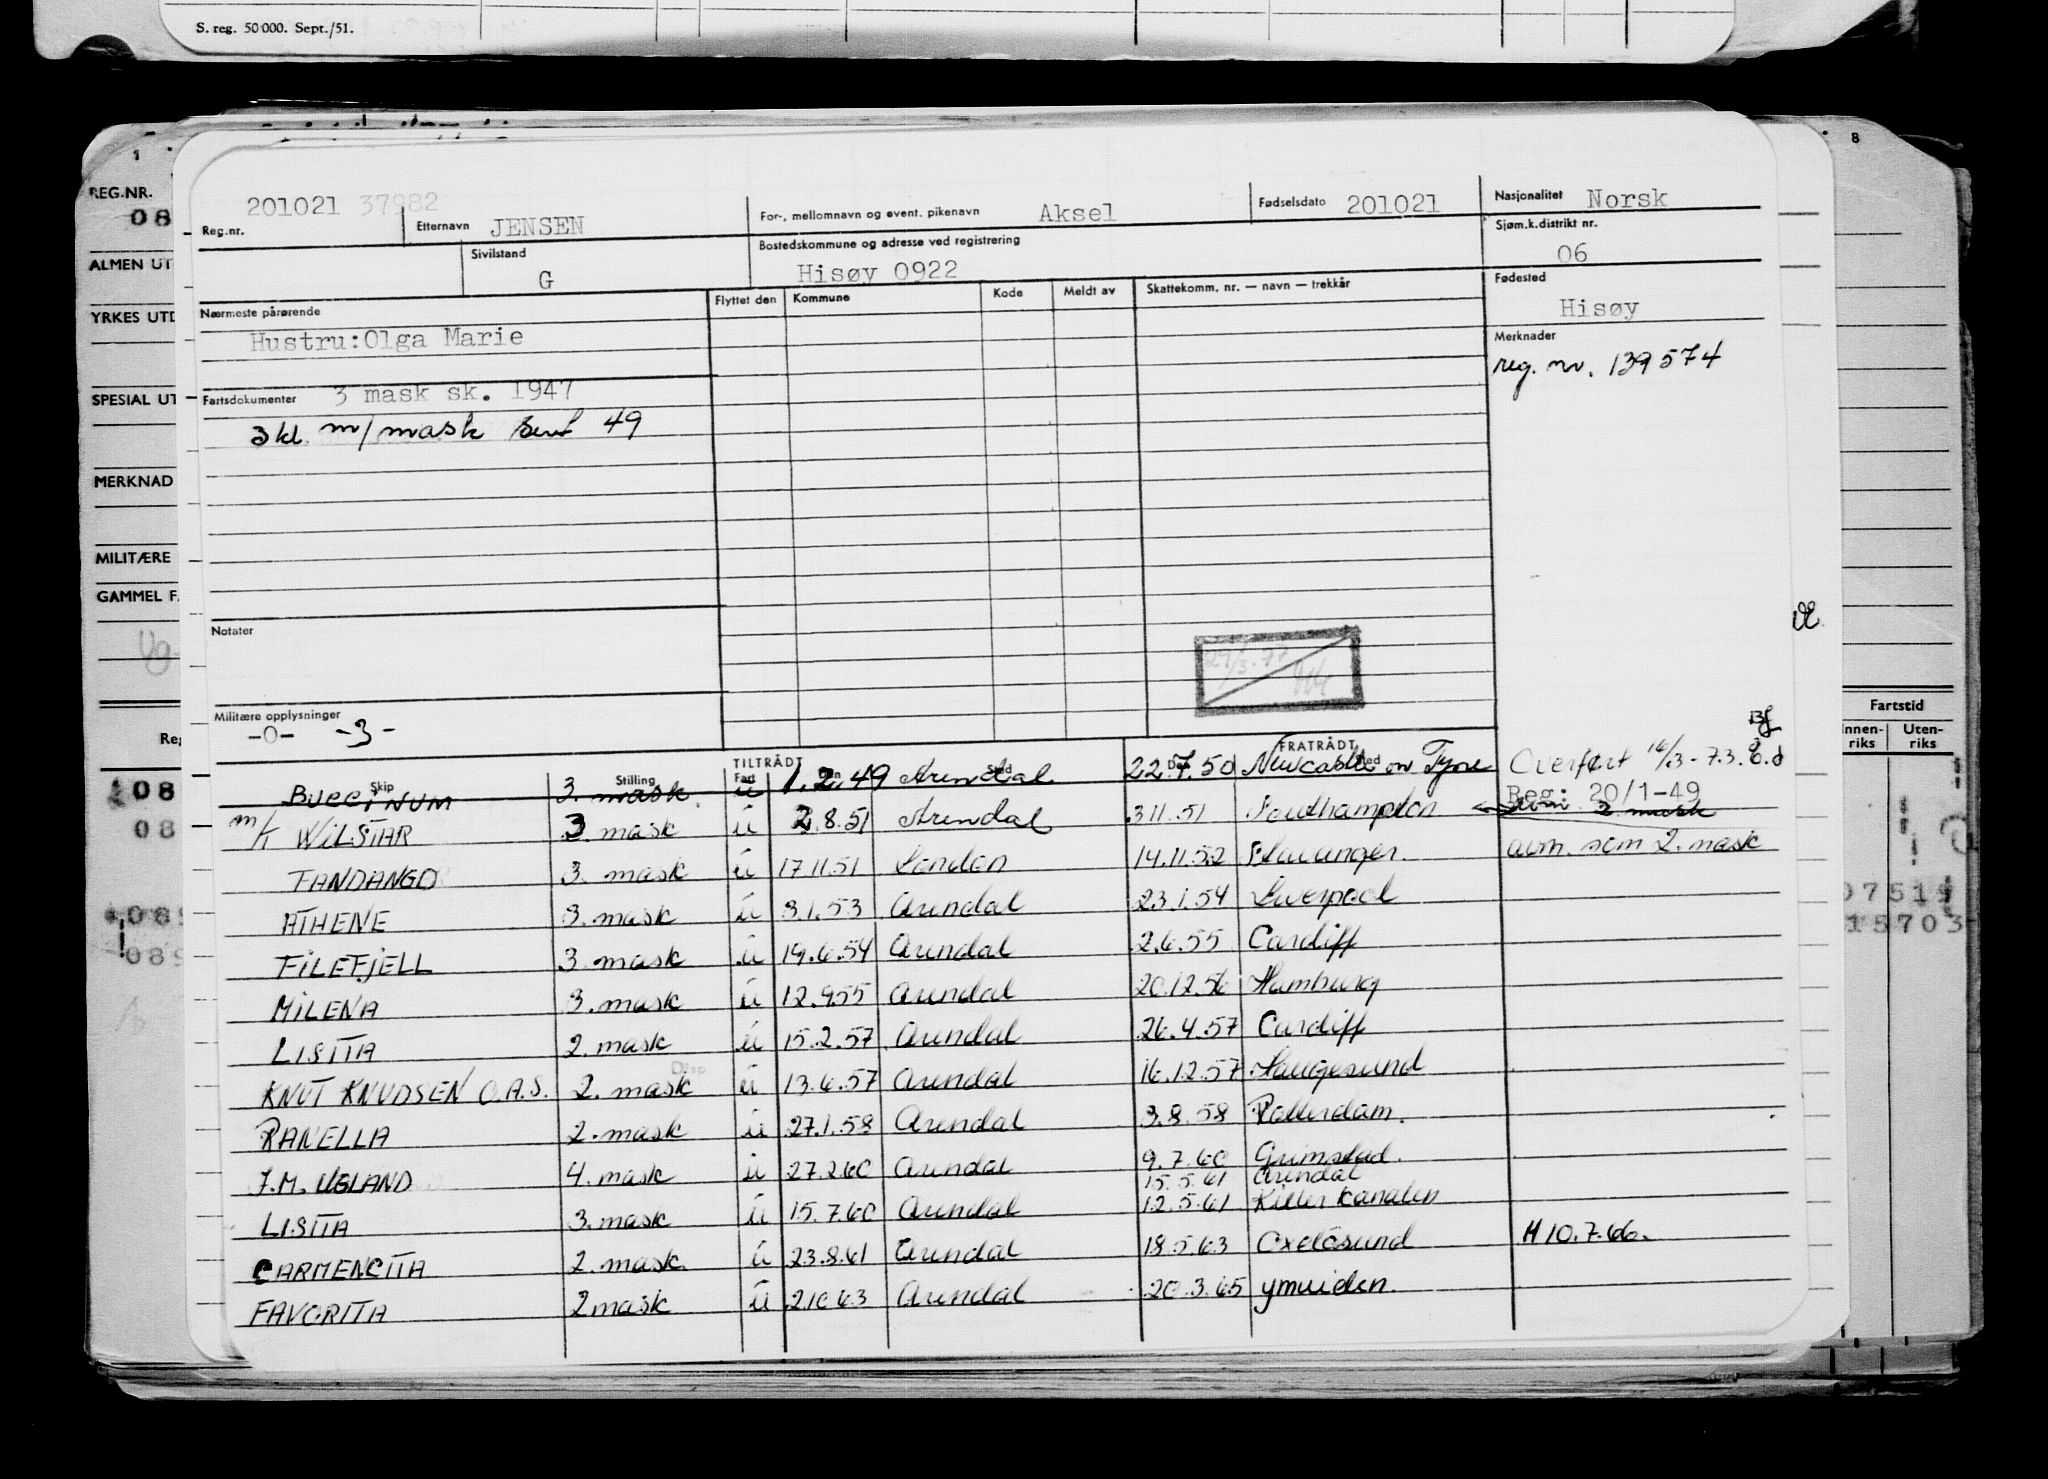 S. reg. 50 000. Sept./51.
1
8
REG.NR.
08
ALMEN UT
YRKES UTD
SPECIAL UT
MERKNAD
MILITÆRE
GAMMEL F
Reg.nr. 201021 37982 Etternavn JENSEN For-, mellomnavn og event. pikenavn Aksel Fødselsdato 201021 Nasjonalitet Norsk
Sivilstand G Bostedskommune og adresse ved registrering Hisøy 0922 Sjøm.k.distrikt nr. 06
Nærmeste pårørende Flyttet den Kommune Kode Meldt av Skattekomm. nr. — navn — trekkår Fødested
Hustru:Olga Marie Hisøy
Merknader
reg. nr. 139574
Fartsdokumenter 3 mask sk. 1947
3 kl. m/mask sert 49
Notater
29/3-77
Militære opplysninger
-0- -3-
Fartstid
Innen-riks Uten-riks
TILTRÅDT FRATRÅDT
Skip Stilling Fart Den Sted Den Sted
BUCCINUM 3. mask. ü 1.2.49 Arendal 22.7.50 Newcastle on Tyne Overført 16/3-73.
Reg: 20/1-49
m/t WILSTAR 3 mask ü 2.8.51 Arendal 3.11.51 Southampton
FANDANGO 3. mask ü 17.11.51 London 14.11.52 Stavanger. avm. som 2. mask
ATHENE 3. mask ü 3.1.53 Arendal 23.1.54 Liverpool
FILEFJELL 3. mask ü 19.6.54 Arendal 2.6.55 Cardiff
MILENA 3. mask ü 12.9.55 Arendal 20.12.56 Hamburg
LISITA 2. mask ü 15.2.57 Arendal 26.4.57 Cardiff
KNUT KNUDSEN O.A.S. 2. mask ü 13.6.57 Arendal 16.12.57 Haugesund
RANELLA 2. mask ü 27.1.58 Arendal 3.8.58 Rotterdam.
J.M. UGLAND 4. mask ü 27.2.60 Arendal 9.7.60 Grimstad.
15.5.61 Arendal
LISITA 3. mask ü 15.7.60 Arendal 12.5.61 Kieler kanalen
CARMENCITA 2. mask ü 23.8.61 Arendal 18.5.63 Oxelösund H 10.7.66.
FAVORITA 2 mask ü 2.10.63 Arendal 20.3.65 ymuiden.
07519
15703